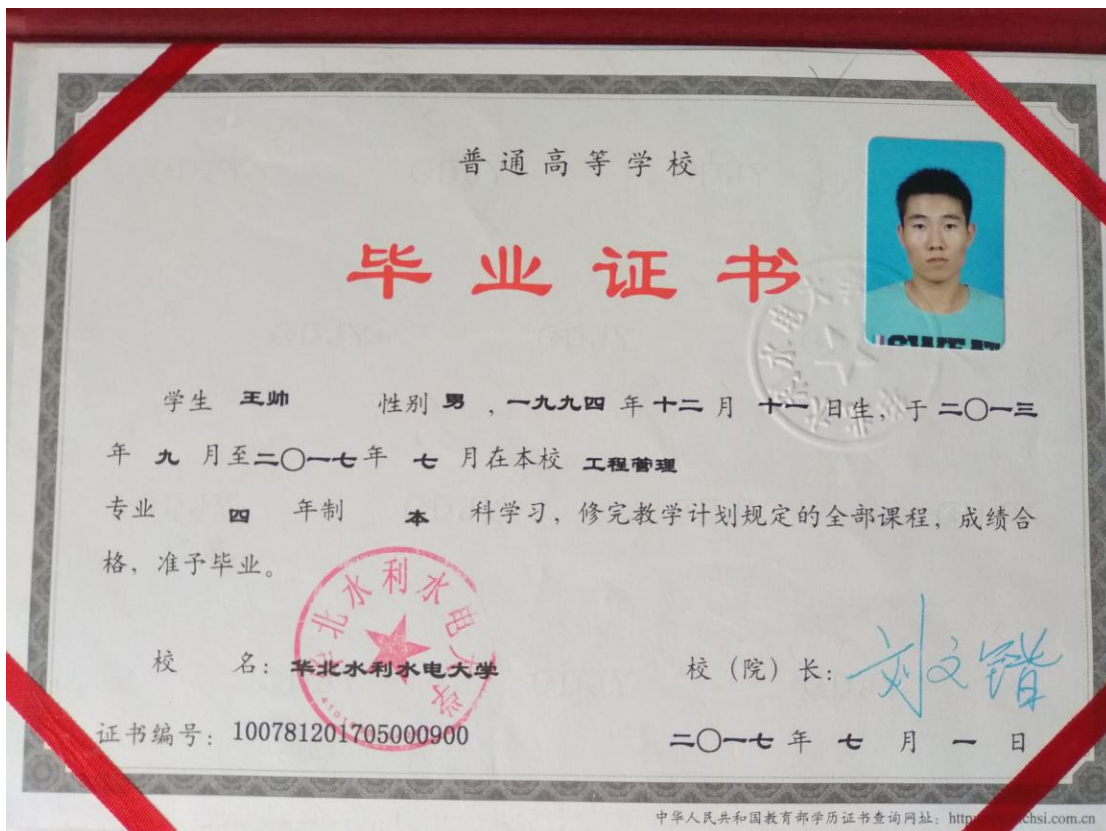 普通高等学校
毕业证书
学生 王帅 性别 男 , 一九九四 年 十二 月 十一 日生, 于 二〇一三
年 九 月至 二〇一七 年 七 月在本校 工程管理
专业 四 年制 本 科学习, 修完教学计划规定的全部课程, 成绩合
格, 准予毕业。
华北水利水电大学
校 名: 华北水利水电大学 校 (院) 长: 刘文锴
证书编号: 100781201705000900 二〇一七 年 七 月 一 日
中华人民共和国教育部学历证书查询网址: http chsi.com.cn